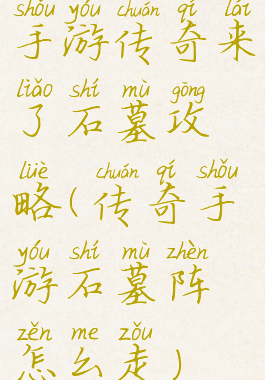 shǒu yóu chuán qí lái
手游传奇来
liǎo shí mù gōng
了石墓攻
lüè chuán qí shǒu
略(传奇手
yóu shí mù zhèn
游石墓阵
zěn me zǒu
怎么走)